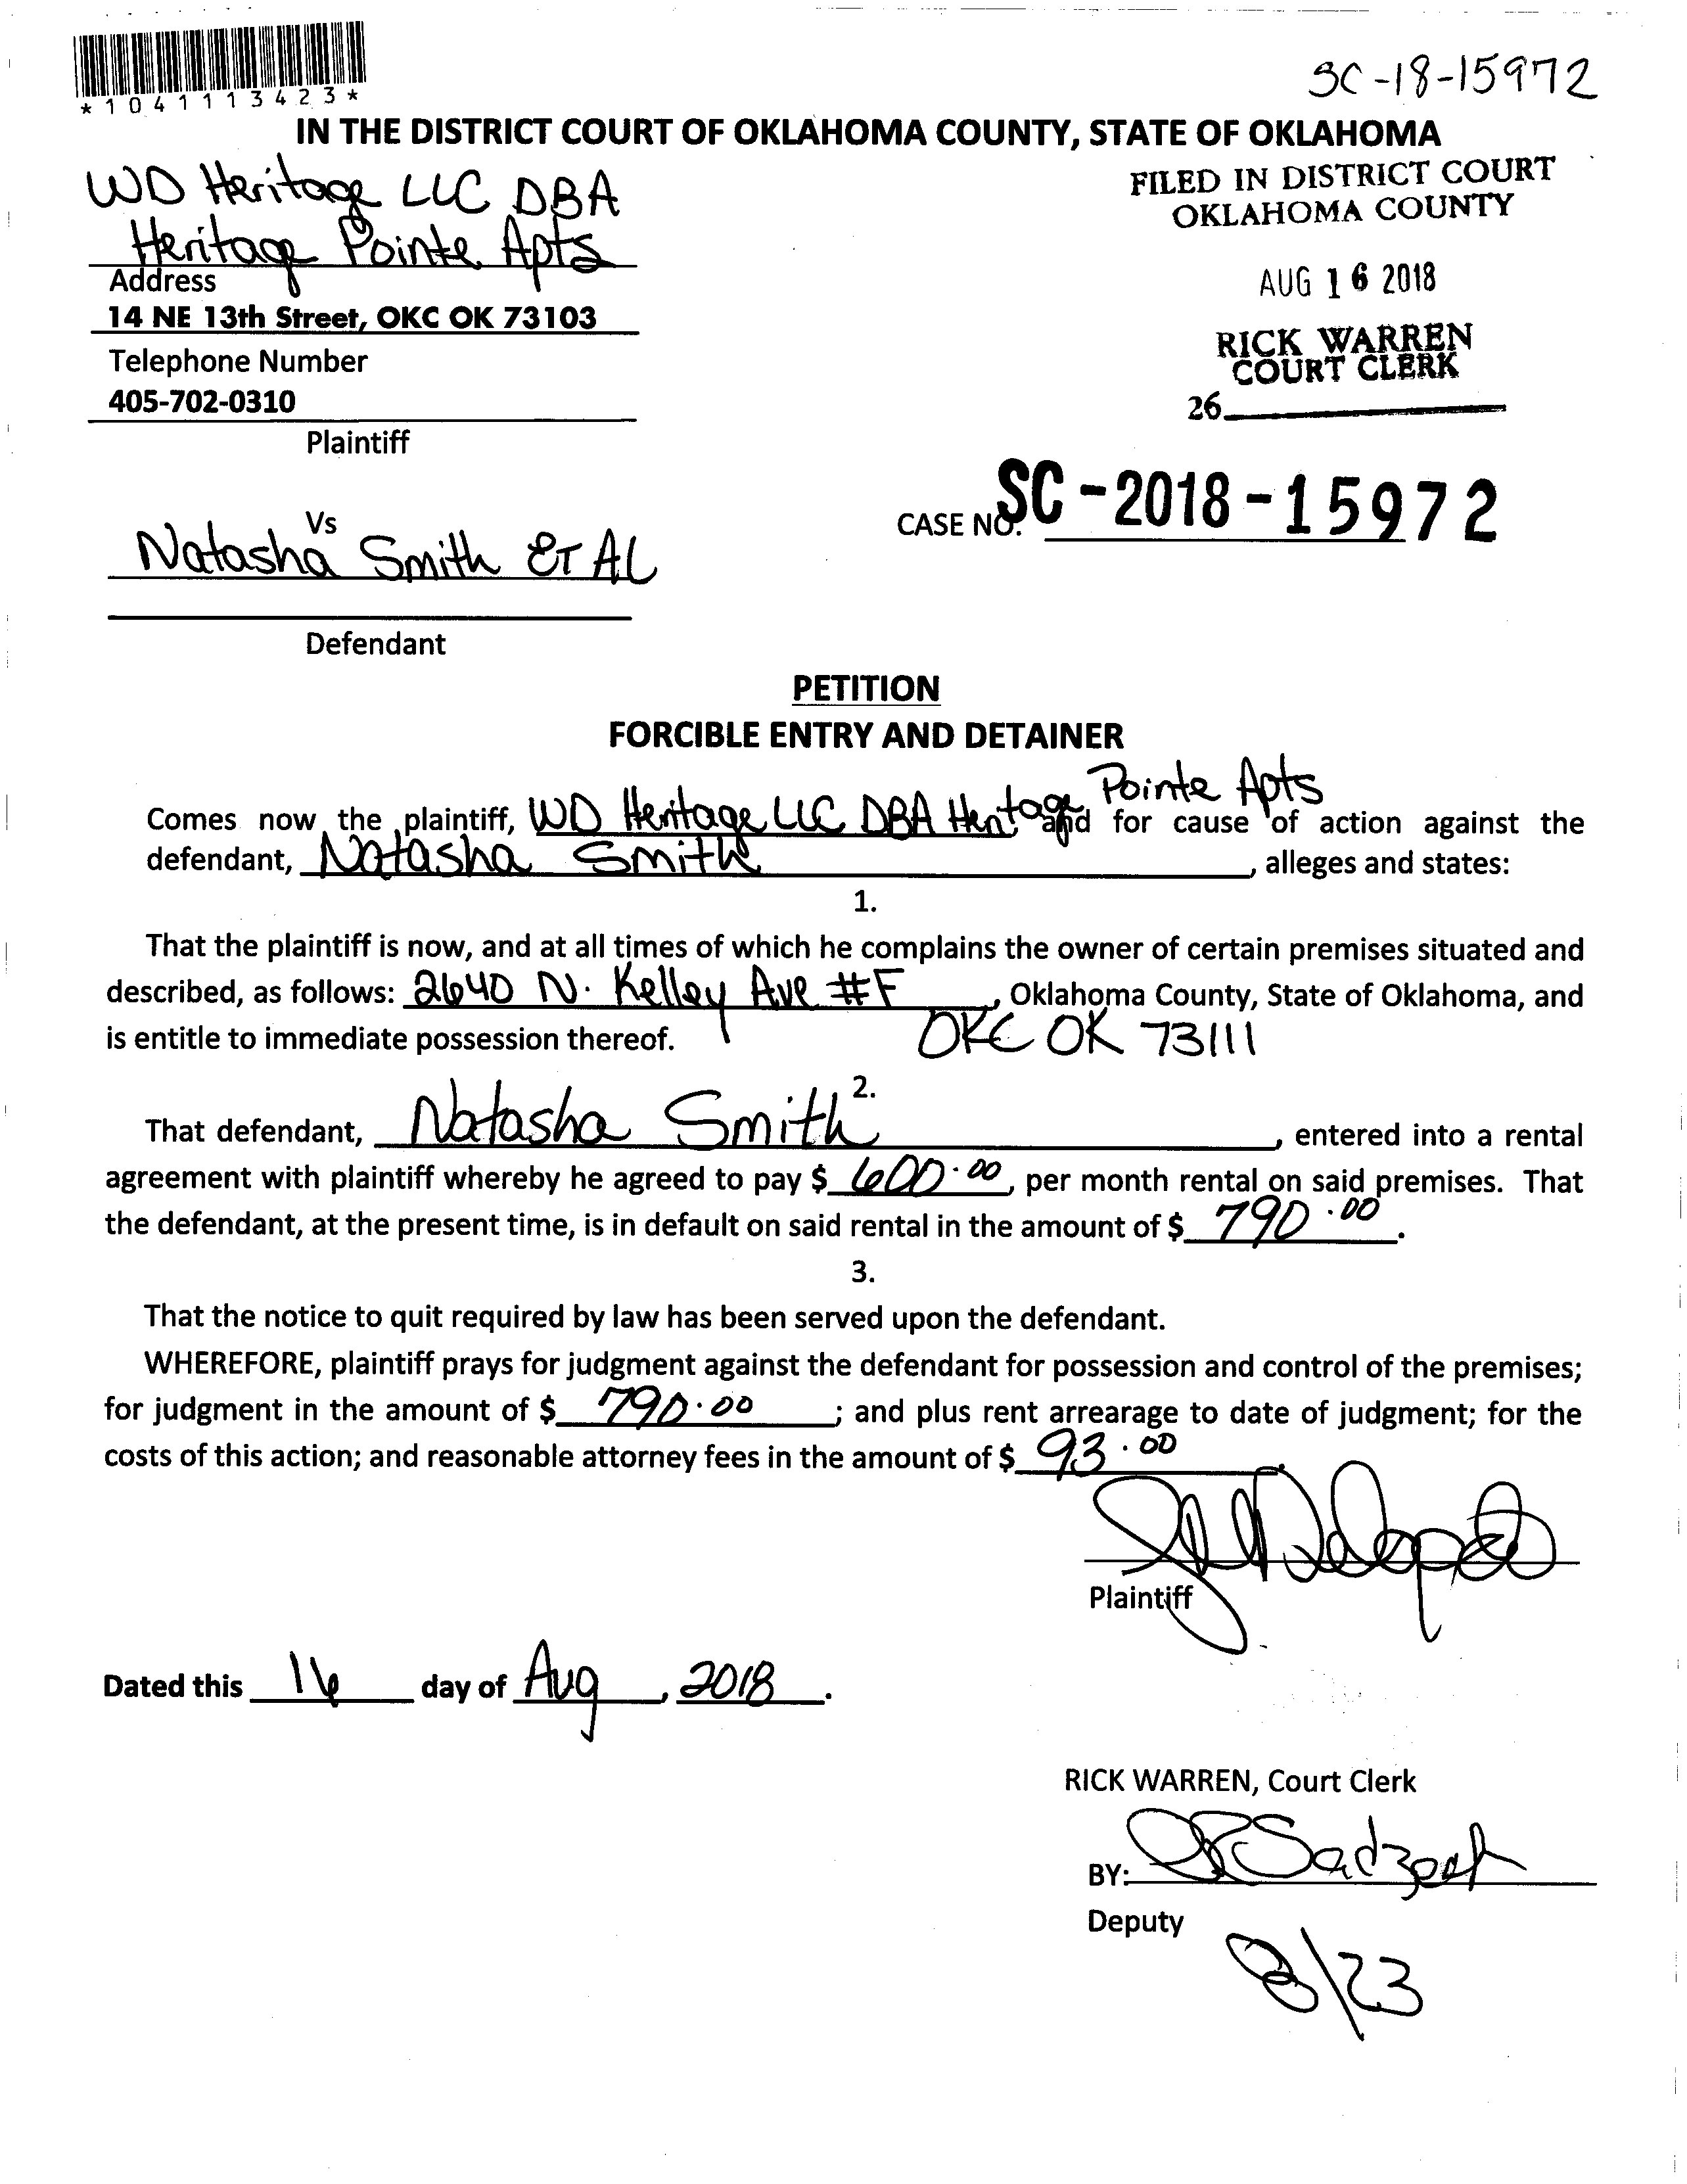 *1041113423*
SC-18-15972
IN THE DISTRICT COURT OF OKLAHOMA COUNTY, STATE OF OKLAHOMA
WD Heritage LLC DBA
Heritage Pointe Apts
Address
14 NE 13th Street, OKC OK 73103
Telephone Number
405-702-0310
Plaintiff
FILED IN DISTRICT COURT
OKLAHOMA COUNTY
AUG 16 2018
RICK WARREN
COURT CLERK
26
CASE NO. SC-2018-15972
Vs
Natasha Smith ET AL
Defendant
PETITION
FORCIBLE ENTRY AND DETAINER
Pointe Apts
Comes now the plaintiff, WD Heritage LLC DBA Heritage and for cause of action against the
defendant, Natasha Smith, alleges and states:
1.
That the plaintiff is now, and at all times of which he complains the owner of certain premises situated and
described, as follows: 2640 N. Kelley Ave #F, Oklahoma County, State of Oklahoma, and
is entitle to immediate possession thereof. OKC OK 73111
2.
That defendant, Natasha Smith, entered into a rental
agreement with plaintiff whereby he agreed to pay $ 600.00, per month rental on said premises. That
the defendant, at the present time, is in default on said rental in the amount of $ 790.00.
3.
That the notice to quit required by law has been served upon the defendant.
WHEREFORE, plaintiff prays for judgment against the defendant for possession and control of the premises;
for judgment in the amount of $ 790.00; and plus rent arrearage to date of judgment; for the
costs of this action; and reasonable attorney fees in the amount of $ 93.00.
Plaintiff
Dated this 16 day of Aug, 2018.
RICK WARREN, Court Clerk
BY:
Deputy
8/23